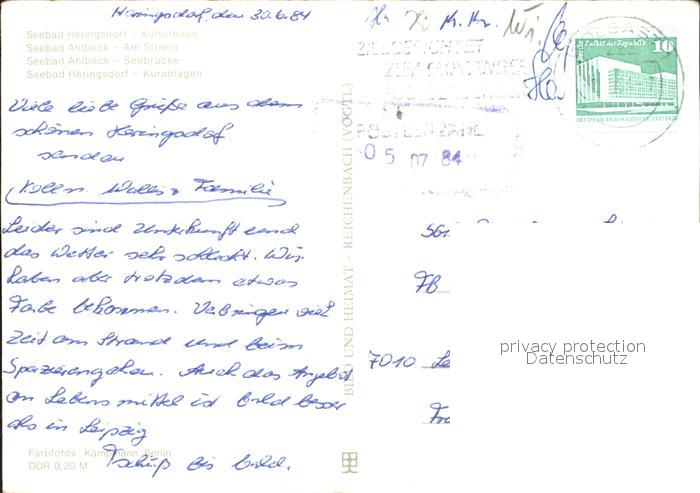 Heringsdorf, den 30.6.84
Seebad Heringsdorf – Kulturhaus
Seebad Ahlbeck – Am Strand
Seebad Ahlbeck – Seebrücke
Seebad Heringsdorf – Kuranlagen
Viele liebe Grüße aus dem
schönen Heringsdorf
senden
Koll n. Wallis + Familie
Leider sind Unterkunft und
das Wetter sehr schlecht. Wir
haben aber trotzdem etwas
Farbe bekommen. Verbringen viel
Zeit am Strand und beim
Spazierengehen. Auch das Angebot
an Lebensmittel ist bald besser
als in Leipzig
Tschüß bis bald.
Farbfotos: Kampmann, Berlin
DDR 0,20 M
BILD UND HEIMAT · REICHENBACH (VOGTL)
Berlin Palast der Republik 10
DEUTSCHE DEMOKRATISCHE REPUBLIK
POSTLEITZAHL
05 07 84
FB
7010 Le
privacy protection
Datenschutz